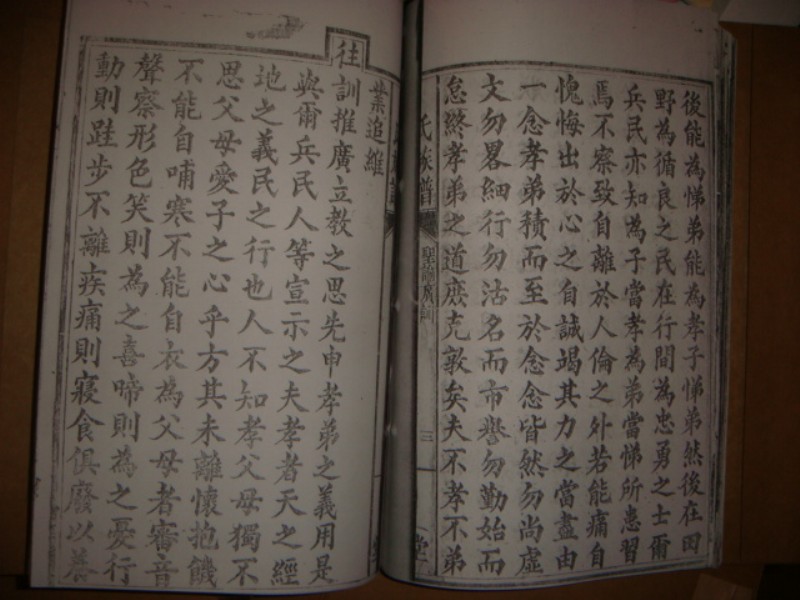 後能為悌弟能為孝子悌弟然後在田
野為循良之民在行間為忠勇之士爾
兵民亦知為子當孝為弟當悌所患習
焉不察致自離於人倫之外若能痛自
愧悔出於心之自誠竭其力之當盡由
一念孝弟積而至於念念皆然勿尚虛
文勿畧細行勿沽名而市譽勿勤始而
怠終孝弟之道庶克敦矣夫不孝不弟
氏族譜
聖諭廣訓
三
堂
業追維
往訓推廣立教之思先申孝弟之義用是
與爾兵民人等宣示之夫孝者天之經
地之義民之行也人不知孝父母獨不
思父母愛子之心乎方其未離懷抱饑
不能自哺寒不能自衣為父母者審音
聲察形色笑則為之喜啼則為之憂行
動則跬步不離疾痛則寢食俱廢以養